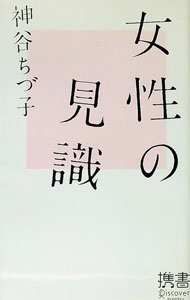 神谷ちづ子
女性の
見識
携書
Discover